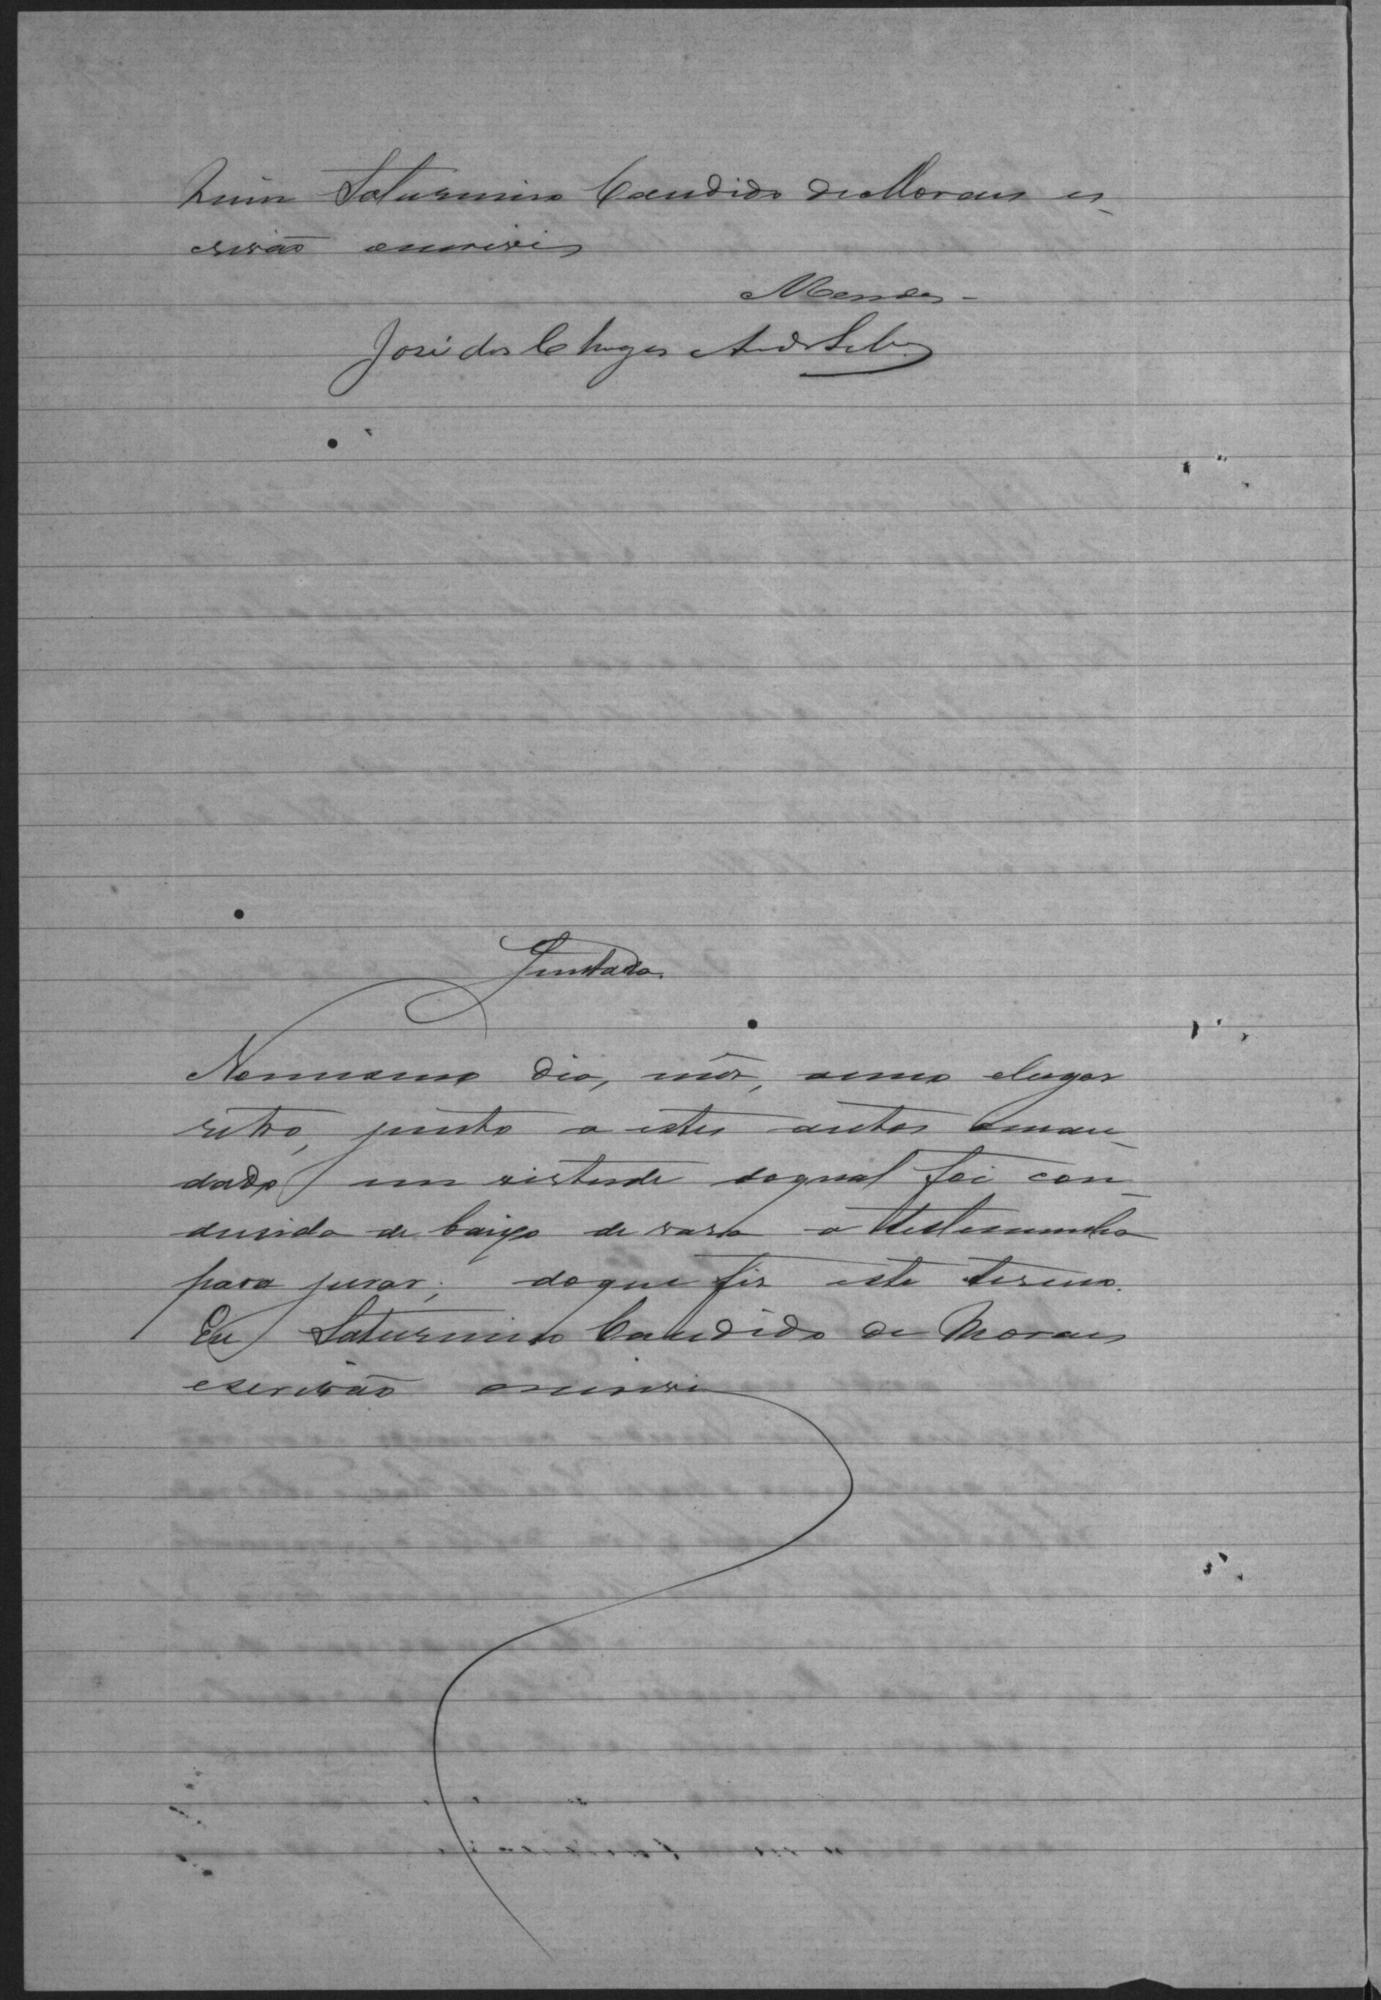 mim Saturnino Candido de Moraes es-
crivão escrivi
Mendes
José das Chagas Andr
Juntada.
No mesmo dia, mês, anno e lugar
retro, junto a estes autos o man-
dado em virtude do qual foi con-
dusida de baixo de vara a testemunha
para jurar; do que fiz este termo.
Eu Saturnino Candido de Moraes
escrivão escrivi